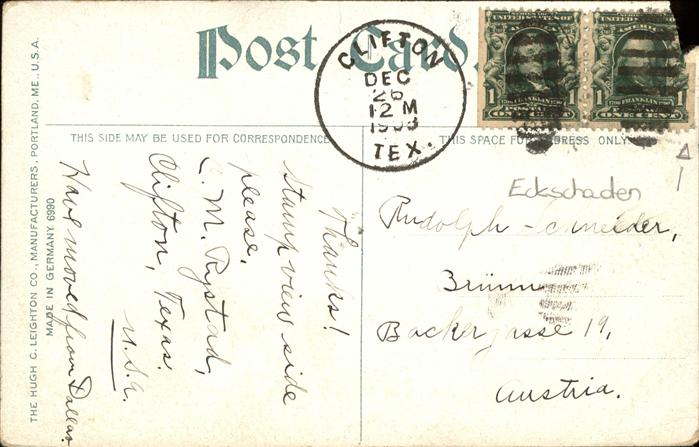 Post Card.
CLIFTON
DEC
26
12 M
1908
TEX.
UNITED STATES OF
AMERICA
FRANKLIN
1 1
ONE CENT
THIS SIDE MAY BE USED FOR CORRESPONDENCE
THIS SPACE FOR ADDRESS ONLY
THE HUGH C. LEIGHTON CO., MANUFACTURERS, PORTLAND, ME., U.S.A.
MADE IN GERMANY 6990
Thanks!
Stamp view side
please.
C. M. Rystad,
Clifton, Texas.
U.S.A.
Have moved from Dallas
Eckschaden
Rudolph Schneider,
Brünn
Backergasse 19,
Austria.